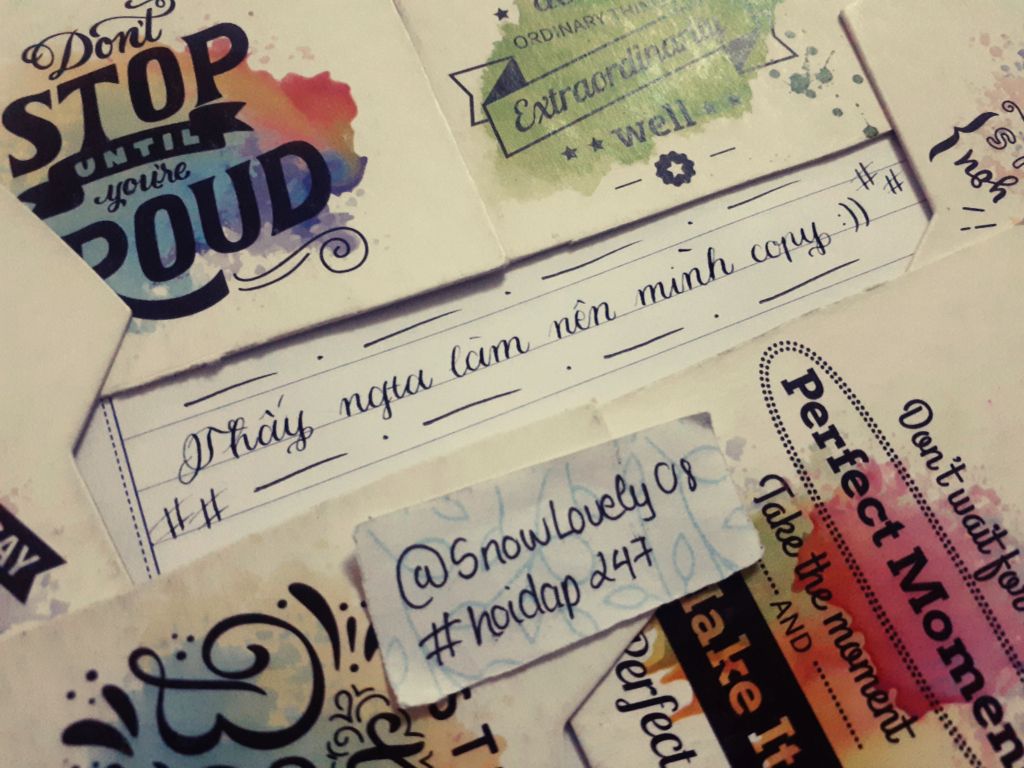 Don't
STOP
UNTIL
you're
POUD
ORDINARY
Extraordinarily
well
Thấy ngta làm nên mình copy :))
##
##
@SnowLovely08
#hoidap247
Don't wait for
Perfect Momen
Take the moment
AND
Make It
Perfect
AY
S T